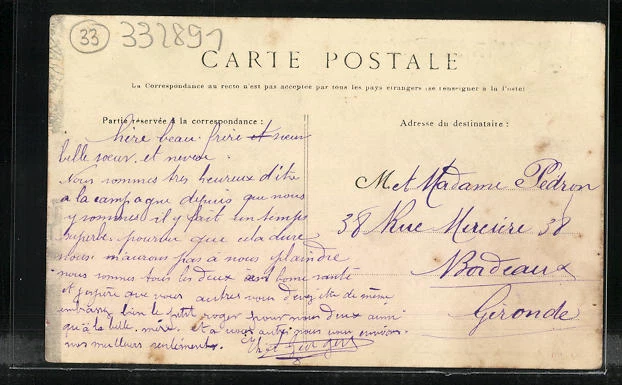 33
332891
CARTE POSTALE
La Correspondance au recto n'est pas acceptée par tous les pays étrangers (se renseigner à la Poste)
Partie réservée à la correspondance :
Adresse du destinataire :
frère beau frère et sœur
belle sœur et neveu
Nous sommes tres heureux d'être
a la campagne depuis que nous
y sommes il y fait un temps
superbe pourvu que cela dure
nous n'aurons pas à nous plaindre
nous sommes tous les deux en bonne santé
et j'espère que vous autres vous de même
embrassez bien le petit roger pour nous deux ainsi
qu'à la belle mère et a vous autres nous vous envoions
nos meilleurs sentiments
M et Madame Pédron
38 Rue Mercière 38
Bordeaux
Gironde